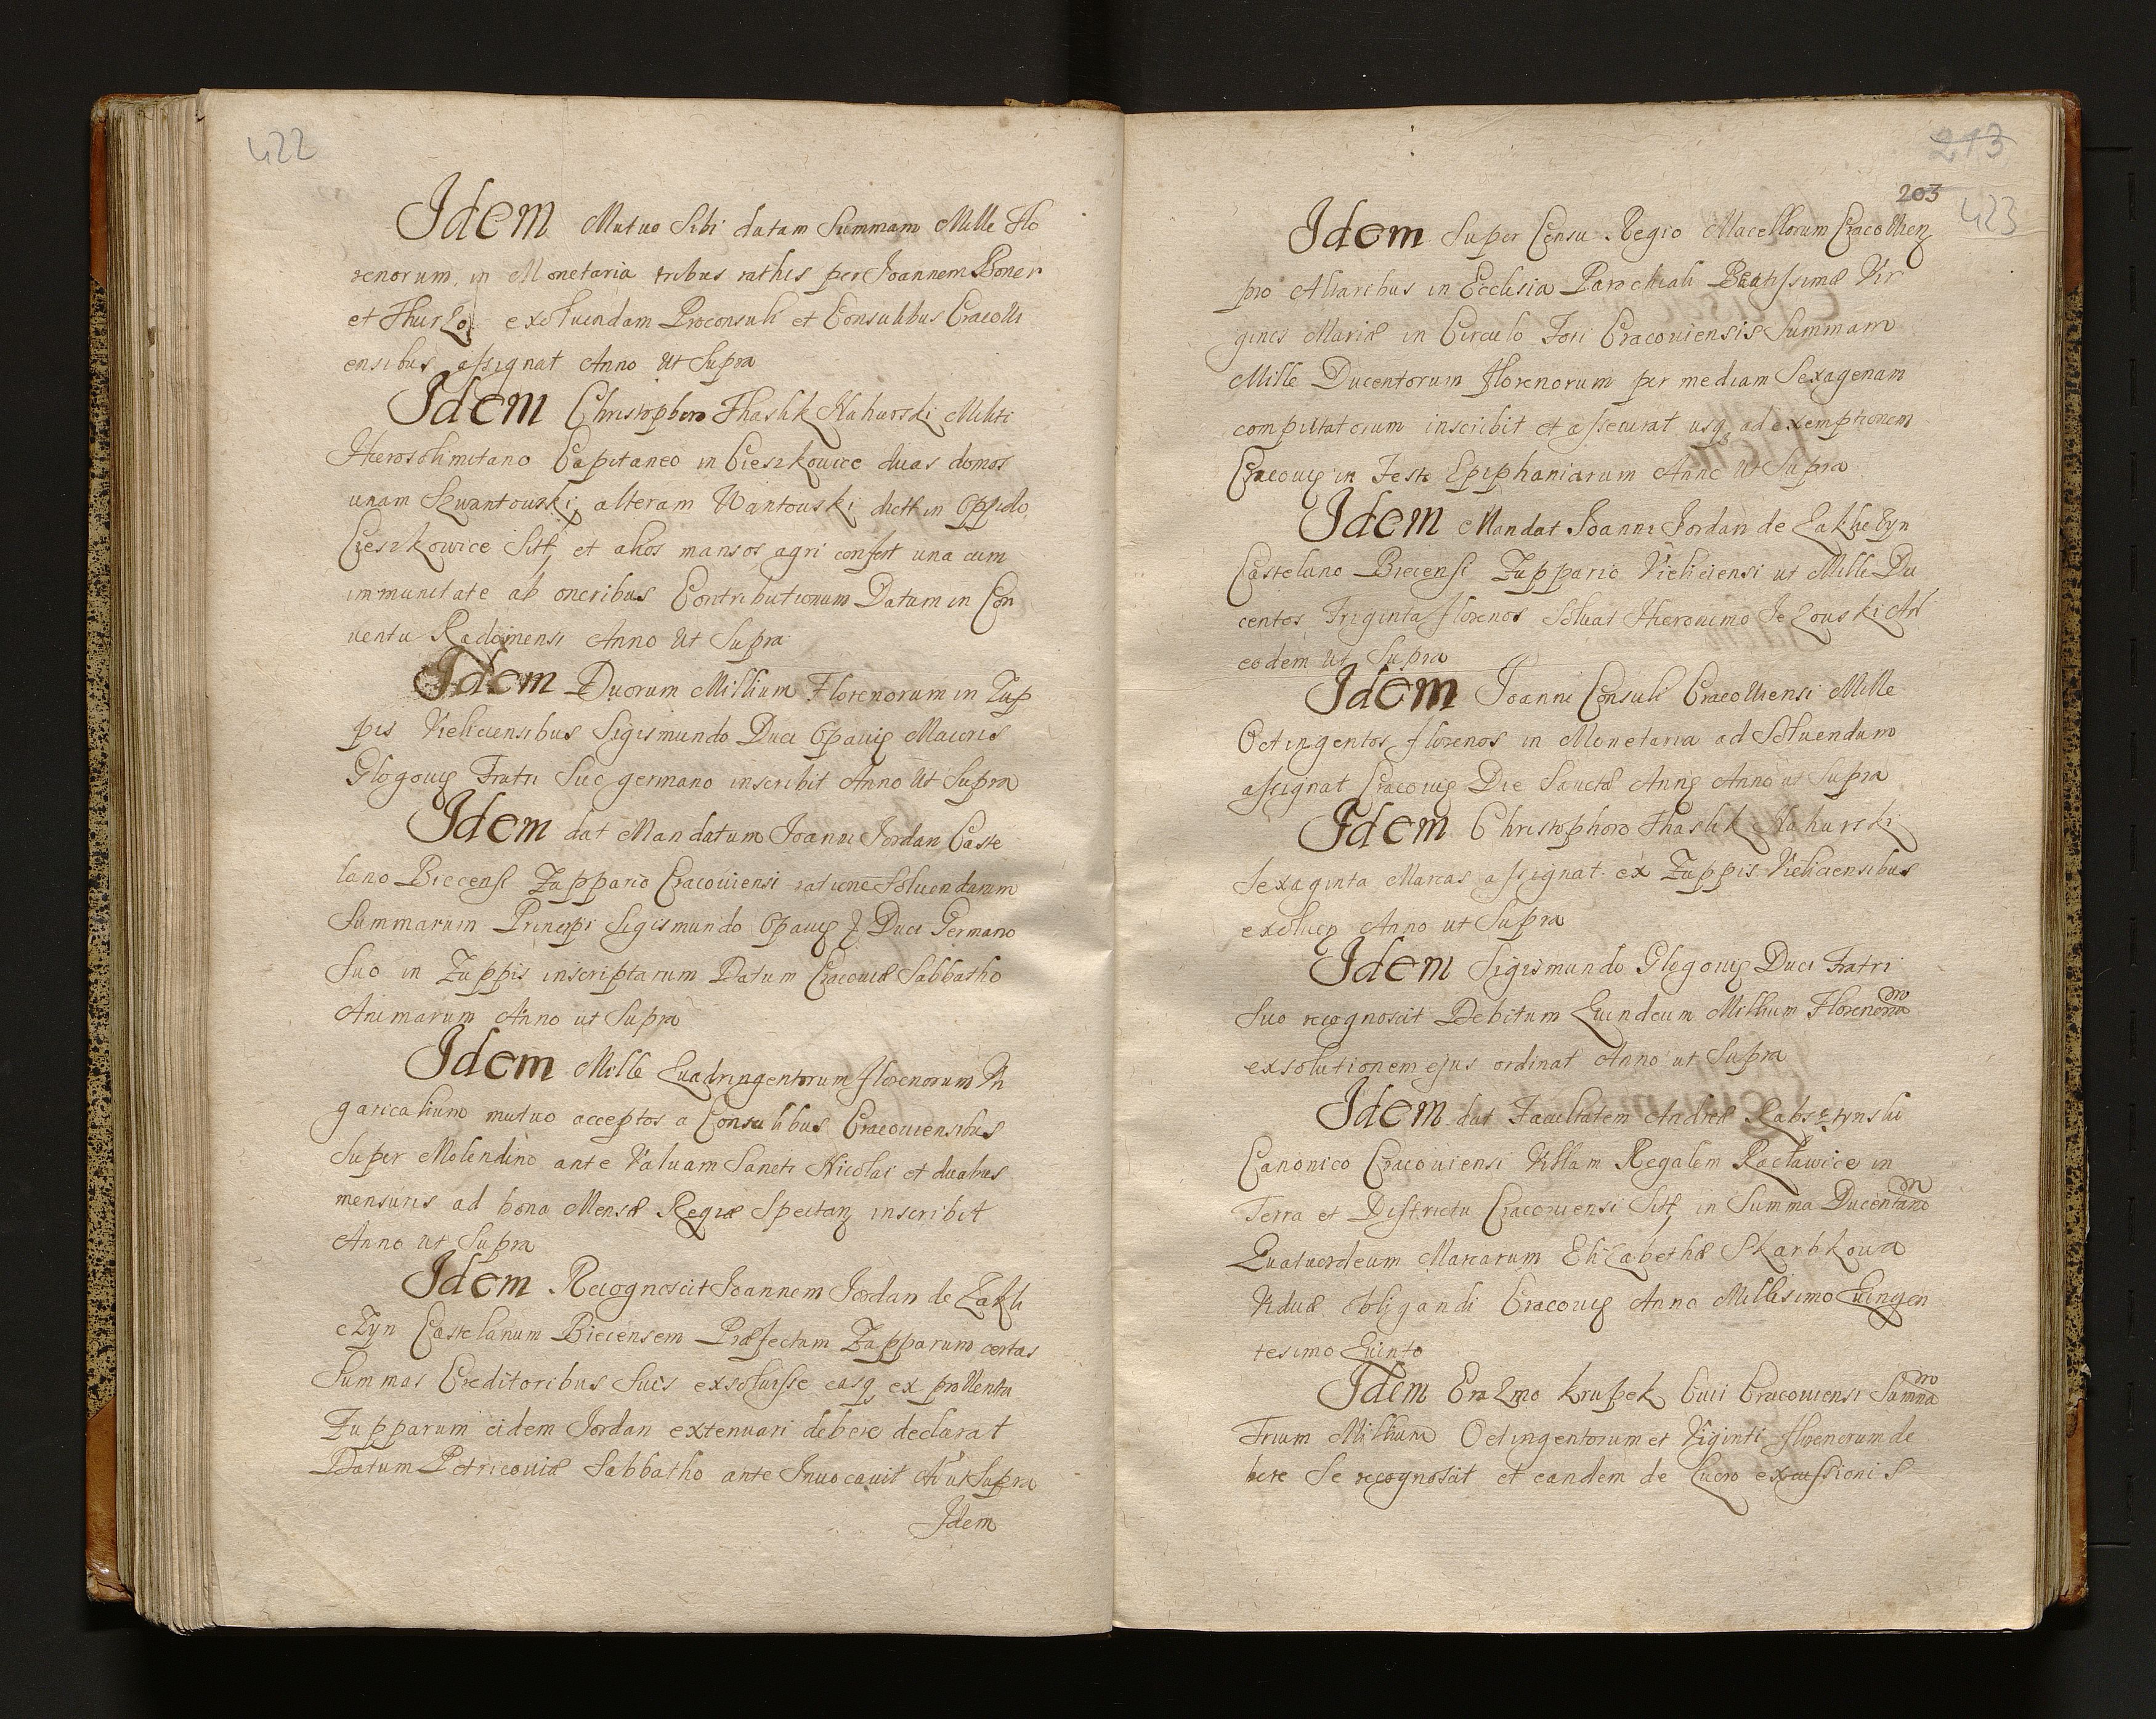 422
Idem Mutuo Sibi datam Summam Mille Flo
renorum in Monetaria tribus rathis per Joannem Boner
et Thurzo exoluendam Proconsuli et Consulibus Cracoui
ensibus assignat Anno ut Supra
Idem Christophoro Thaslik Nahurski Militi
Hierosolimitano Capitaneo in Cieszkowice duas domos
unam Szwantouski, alteram Wantouski dictt in Oppido
Cieszkowice Sitt, et alios mansos agri confert una cum
immunitate ab oneribus Contributionum Datum in Con
uentu Radomensi Anno ut Supra
Idem Duorum Millium Florenorum in Zup
pis Vieliciensibus Sigismundo Duci Opauię Maioris
Glogouię Fratri Suo germano inscribit Anno ut Supra
Idem dat Mandatum Joanni Jordan Caste
lano Biecensi Zuppario Cracouiensi ratione Soluendarum
Summarum Principi Sigismundo Opauię Duci Germano
Suo in Zuppis inscriptarum Datum Cracouiæ Sabbatho
Animarum Anno ut Supra
Idem Mille Quadringentorum florenorum Vn
garicalium mutuo acceptos a Consulibus Cracouiensibus
Super Molendino ante Valuam Sancti Nicolai et duabus
mensuris ad bona Mensæ Regiæ Spectan inscribit
Anno ut Supra
Idem Recognoscit Joannem Jordan de Zakli
cZyn Castelanum Bieciensem Præfectum Zupparum certas
Summas Creditoribus Suis exsoluisse easq ex prouentu
Zupparum eidem Jordan extenuari debere declarat
Datum Petricouiæ Sabbatho ante Inuocauit Ao ut Supra
Idem
213
203
423
Idem Super Censu Regio Macellorum Cracouien
pro Altaribus in Ecclesia Parochiali Beatissimæ Vir
ginis Mariæ in Circulo Fori Cracouiensis Summam
Mille Ducentorum florenorum per mediam Sexagenam
computatorum inscribit et assecurat usq ad exemptionem
Cracouię in Festo Epiphaniarum Anno ut Supra
Idem Mandat Joanni Jordan de Zakliczyn
Castelano Biecensi Zuppario Vieliciensi ut Mille Du
centos Triginta florenos Soluat Hieronimo
eodem ut Supra
Idem Joanni Consuli Cracouiensi Mille
Octingentos florenos in Monetaria ad Soluendum
assignat Cracouię Die Sanctæ Annę Anno ut Supra
Idem Christophoro Thaslik Nahurski
Sexaginta Marcas assignat ex Zuppis Vieliciensibus
exoluen Anno ut Supra
Idem Sigismundo Glogouię Duci Fratri
Suo recognoscit Debitum Quindecim Millium Florenorum
exsolutionem ejus ordinat Anno ut Supra
Idem dat Facultatem Andreæ Rabsztynski
Canonico Cracouiensi Villam Regalem Racławice in
Terra et Districtu Cracouiensi Sitt, in Summa Ducentarum
Quatuordecim Marcarum Elizabethæ Skarbkoua
Viduæ obligandi Cracouię Anno Millesimo Quingen
tesimo Quinto
Idem Erazmo Krupek Ciui Cracouiensi Summa
Trium Millium Octingentorum et Viginti florenorum de
bere Se recognoscit et eandem de Lucro excussionis